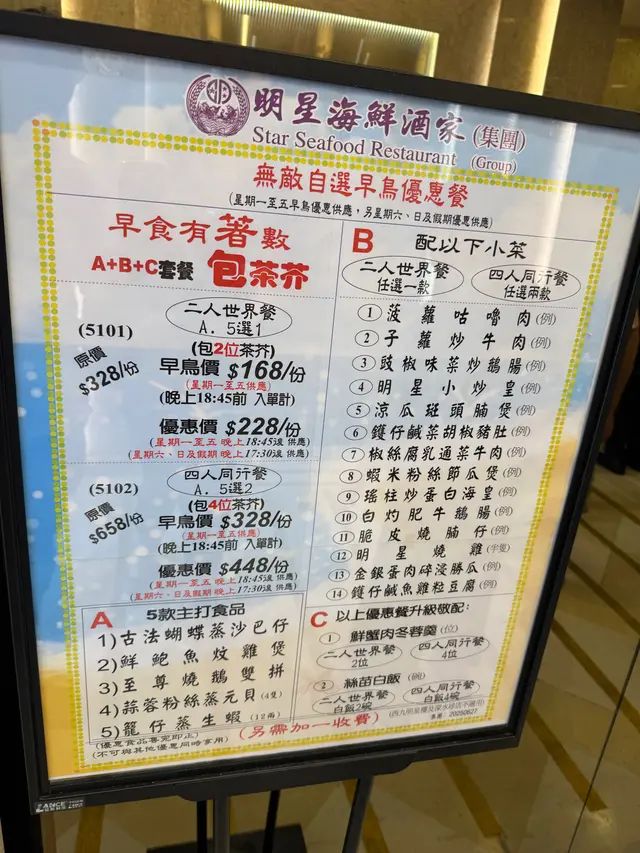 明星海鮮酒家 (集團)
Star Seafood Restaurant (Group)
無敵自選早鳥優惠餐
(星期一至五早鳥優惠供應，另星期六、日及假期優惠供應)
早食有著數
A+B+C套餐 包茶芥
二人世界餐
(5101) A. 5選1
原價 $328/份
(包2位茶芥)
早鳥價 $168/份
(星期一至五供應)
(晚上18:45前 入單計)
優惠價 $228/份
(星期一至五 晚上18:45後 供應)
(星期六、日及假期 晚上17:30後 供應)
四人同行餐
(5102) A. 5選2
原價 $658/份
(包4位茶芥)
早鳥價 $328/份
(星期一至五供應)
(晚上18:45前 入單計)
優惠價 $448/份
(星期一至五 晚上18:45後 供應)
(星期六、日及假期 晚上17:30後 供應)
A 5款主打食品
1)古法蝴蝶蒸沙巴仔
2)鮮鮑魚炆雞煲
3)至尊燒鵝雙拼
4)蒜蓉粉絲蒸元貝(4隻)
5)籠仔蒸生蝦(12兩)
(優惠食品售完即止)
(不可與其他優惠同時享用)
B 配以下小菜
二人世界餐 任選一款
四人同行餐 任選兩款
1 菠蘿咕嚕肉(例)
2 子蘿炒牛肉(例)
3 豉椒味菜炒鵝腸(例)
4 明星小炒皇(例)
5 涼瓜斑頭腩煲(例)
6 鑊仔鹹菜胡椒豬肚(例)
7 椒絲腐乳通菜牛肉(例)
8 蝦米粉絲節瓜煲(例)
9 瑤柱炒蛋白海皇(例)
10 白灼肥牛鵝腸(例)
11 脆皮燒腩仔(例)
12 明星燒雞(半隻)
13 金銀蛋肉碎浸勝瓜(例)
14 鑊仔鹹魚雞粒豆腐(例)
C 以上優惠餐升級敬配:
1 鮮蟹肉冬蓉羹(位)
二人世界餐 2位
四人同行餐 4位
2 絲苗白飯(碗)
二人世界餐 白飯2碗
四人同行餐 白飯4碗
(另需加一收費)
20250627